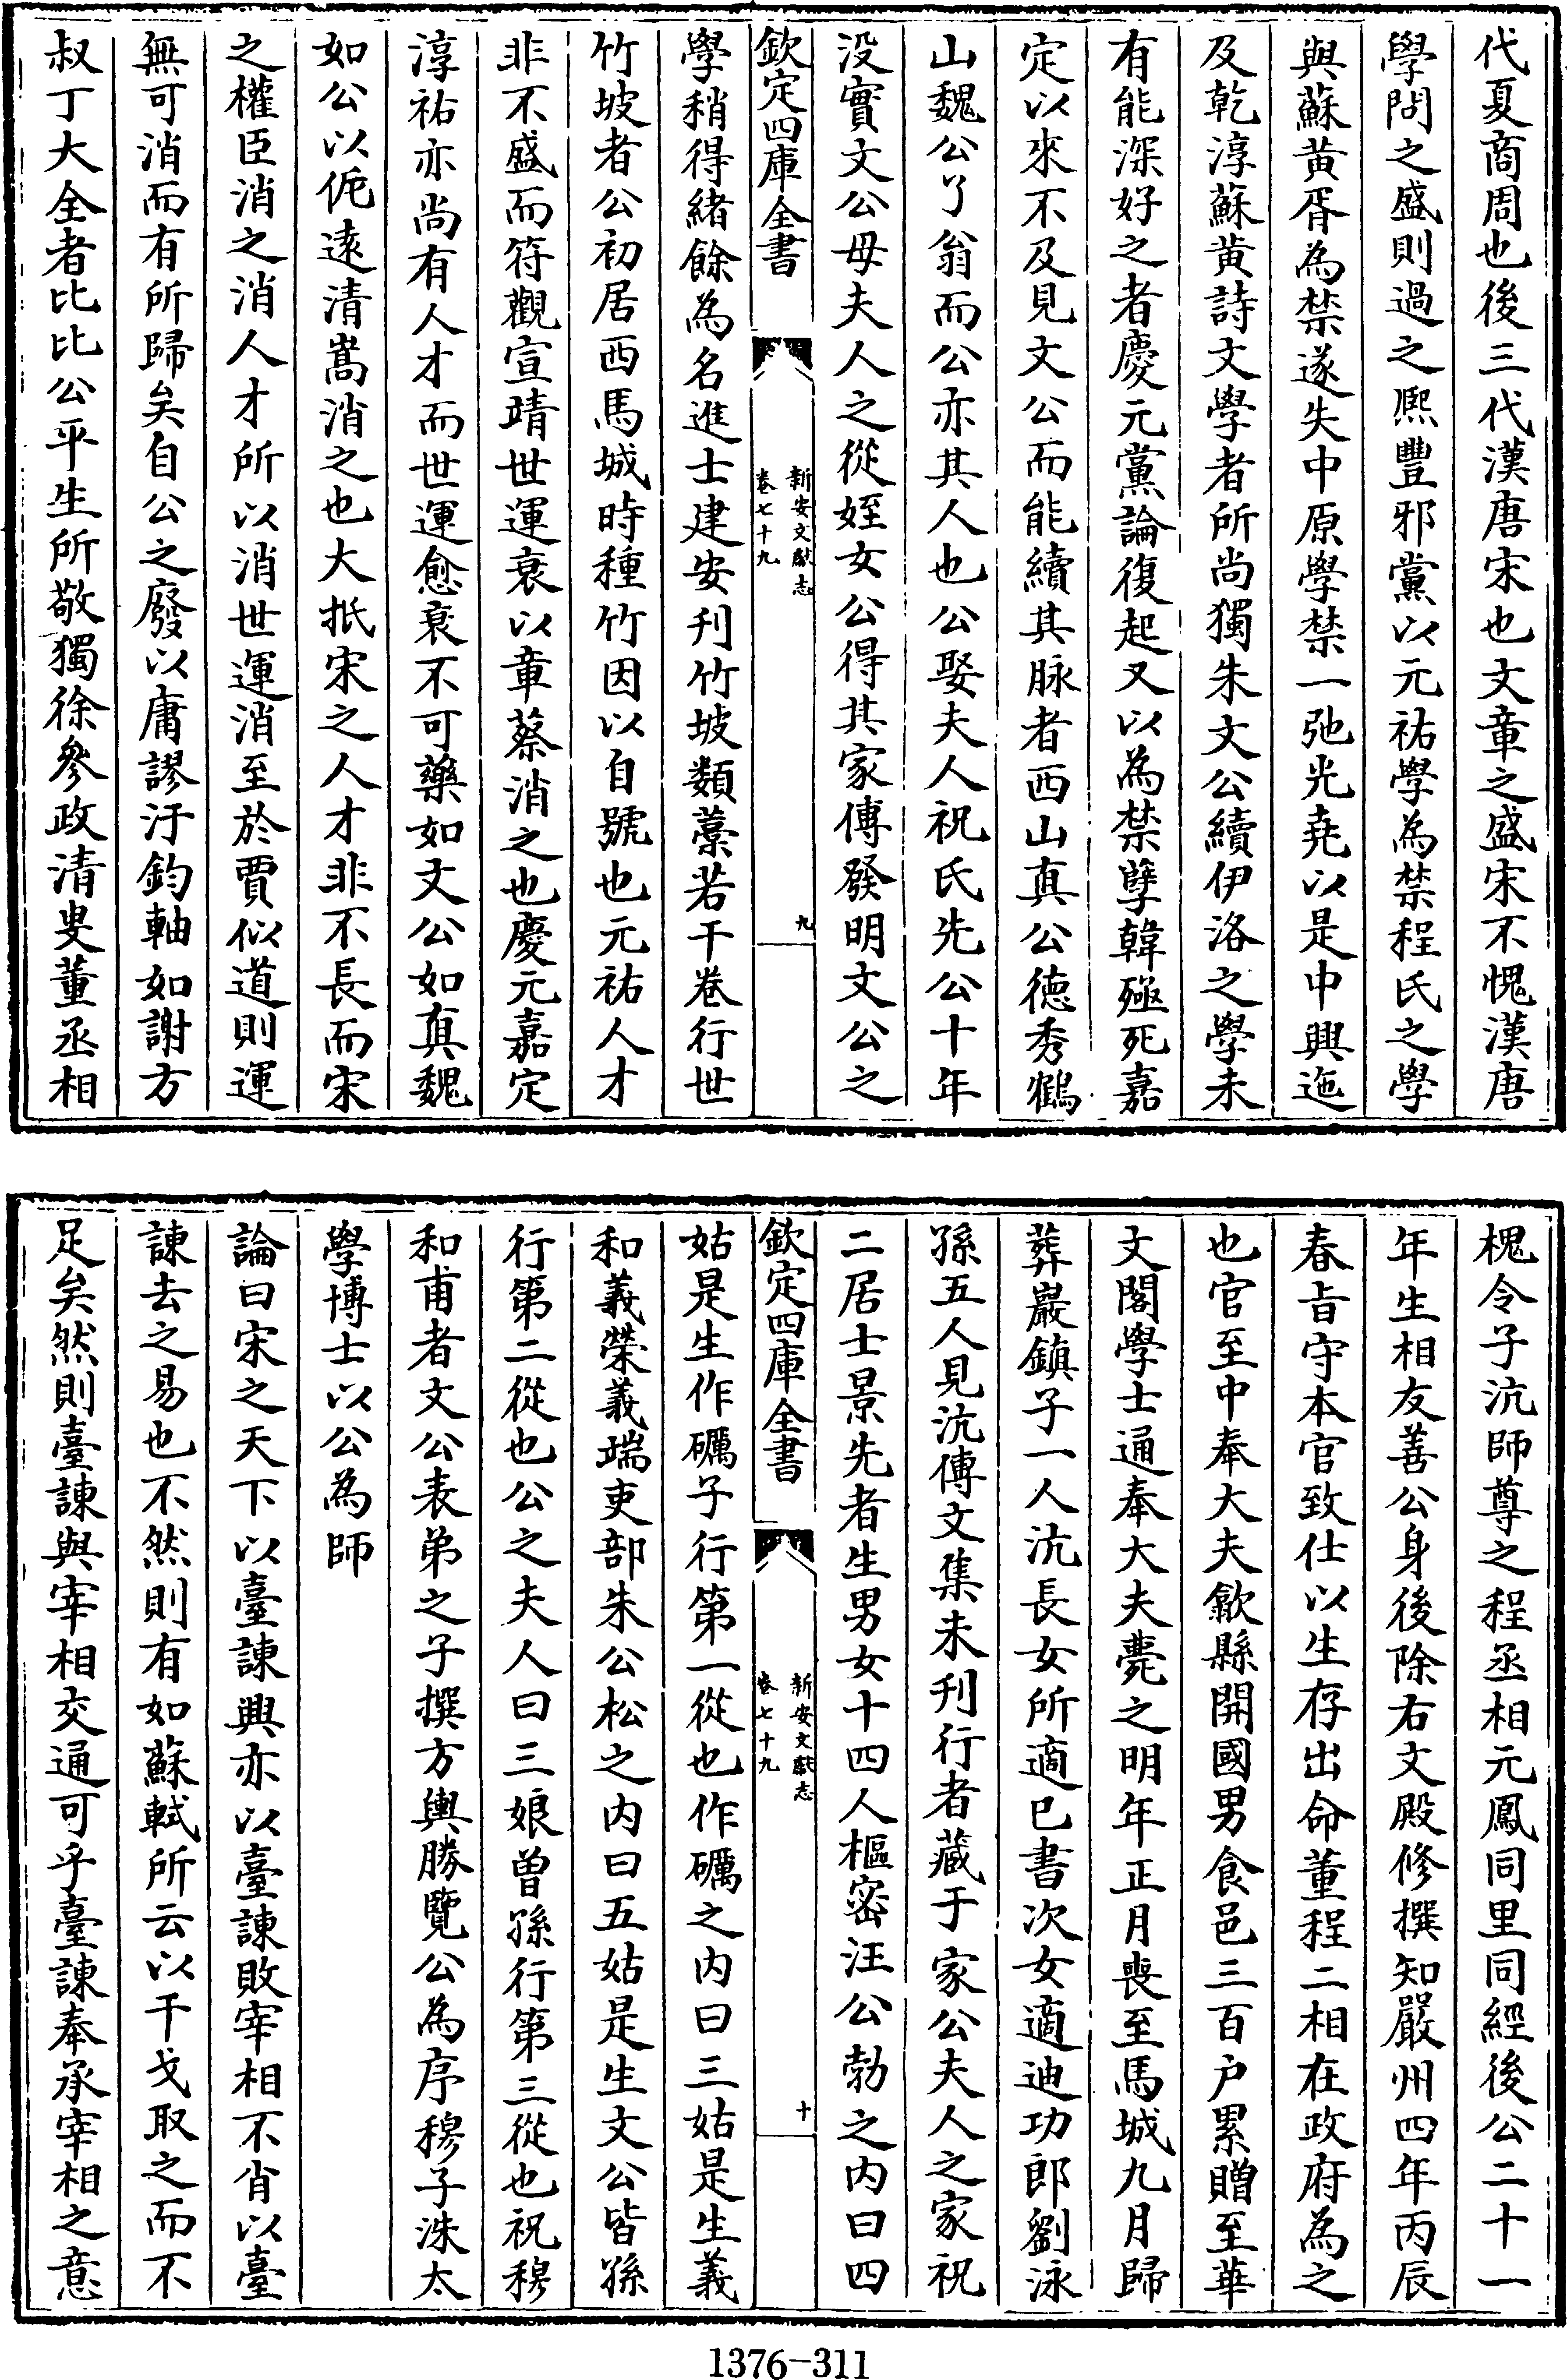 代夏商周也後三代漢唐宋也文章之盛宋不愧漢唐
學問之盛則過之熈豐邪黨以元祐學為禁程氏之學
與蘇黄胥為禁遂失中原學禁一弛光堯以是中興迤
及乾淳蘇黄詩文學者所尚獨朱文公續伊洛之學未
有能深好之者慶元黨論復起又以為禁孽韓殛死嘉
定以來不及見文公而能續其脉者西山真公徳秀鶴
山魏公了翁而公亦其人也公娶夫人祝氏先公十年
没實文公母夫人之從姪女公得其家傳發明文公之
欽定四庫全書
新安文獻志
卷七十九
九
學稍得緒餘為名進士建安刋竹坡類藁若干卷行世
竹坡者公初居西馬城時種竹因以自號也元祐人才
非不盛而符觀宣靖世運衰以章蔡消之也慶元嘉定
淳祐亦尚有人才而世運愈衰不可藥如文公如真魏
如公以侂逺清嵩消之也大抵宋之人才非不長而宋
之權臣消之消人才所以消世運消至於賈似道則運
無可消而有所歸矣自公之廢以庸謬汙鈞軸如謝方
叔丁大全者比比公平生所敬獨徐參政清叟董丞相
槐令子沆師尊之程丞相元鳳同里同經後公二十一
年生相友善公身後除右文殿修撰知嚴州四年丙辰
春㫖守本官致仕以生存出命董程二相在政府為之
也官至中奉大夫歙縣開國男食邑三百户累贈至華
文閣學士通奉大夫薨之明年正月喪至馬城九月歸
葬巖鎮子一人沆長女所適已書次女適迪功郎劉泳
孫五人見沆傳文集未刋行者藏于家公夫人之家祝
二居士景先者生男女十四人樞密汪公勃之内曰四
欽定四庫全書
新安文獻志
卷七十九
十
姑是生作礪子行第一從也作礪之内曰三姑是生義
和義榮義端吏部朱公松之内曰五姑是生文公皆孫
行第二從也公之夫人曰三娘曽孫行第三從也祝穆
和甫者文公表弟之子撰方輿勝覽公為序穆子洙太
學博士以公為師
論曰宋之天下以臺諫興亦以臺諫敗宰相不肖以臺
諫去之易也不然則有如蘇軾所云以干戈取之而不
足矣然則臺諫與宰相交通可乎臺諫奉承宰相之意
1376-311